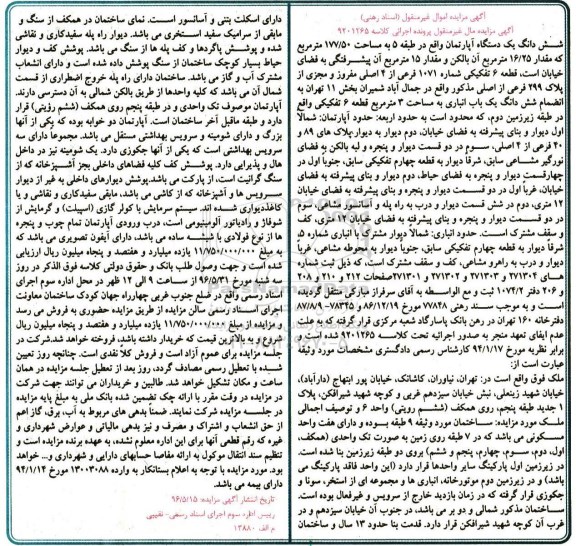 آگهی مزایده اموال غیرمنقول (اسناد رهنی)
آگهی مزایده مال غیرمنقول پرونده اجرائی کلاسه ۹۲۰۱۲۶۵
شش دانگ یک دستگاه آپارتمان واقع در طبقه ۵ به مساحت ۱۷۷/۵۰ مترمربع
که مقدار ۱۶/۲۵ مترمربع آن بالکن و مقدار ۱۵ مترمربع آن پیشرفتگی به فضای
خیابان است، قطعه ۶ تفکیکی شماره ۱۰۷۱ فرعی از ۴ اصلی مفروز و مجزی از
پلاک ۲۹۹ فرعی از اصلی مذکور واقع در جمال آباد شمیران بخش ۱۱ تهران به
انضمام شش دانگ یک باب انباری به مساحت ۳ مترمربع قطعه ۶ تفکیکی واقع
در طبقه زیرزمین دوم، که محدود است به حدود اربعه: حدود آپارتمان: شمالاً
اول دیوار و بنای پیشرفته به فضای خیابان، دوم دیوار به دیوار پلاک های ۸۹ و
۴۰ فرعی از ۴ اصلی، سوم در دو قسمت دیوار و پنجره و لبه بالکن به فضای
نورگیر مشاعی سابق، شرقاً دیوار به قطعه چهارم تفکیکی سابق، جنوباً اول در
چهارقسمت دیوار و پنجره به فضای حیاط، دوم دیوار و بنای پیشرفته به فضای
خیابان، غرباً اول در دو قسمت دیوار و پنجره و بنای پیشرفته به فضای خیابان
۱۲ متری، دوم در شش قسمت دیوار و درب به راه پله و آسانسور مشاعی سوم
در دو قسمت دیوار و پنجره و بنای پیشرفته به فضای خیابان ۱۲ متری، کف
و سقف مشترک است. حدود انباری: شمالاً دیوار مشترک با انباری شماره ۵،
شرقاً دیوار به قطعه چهارم تفکیکی سابق، جنوباً دیوار به محوطه مشاعی، غرباً
دیوار و درب به راهرو مشاعی، کف و سقف مشترک است، که ذیل ثبت شماره
های ۲۷۱۳۰۴ و ۲۷۱۳۰۳ و ۲۷۱۳۰۲ و ۲۷۱۳۰۱ صفحات ۲۱۲ و ۲۱۰ و ۲۰۸
و ۲۰۶ دفتر ۱۰۷۴/۲ ثبت و مع الواسطه به آقای سرفراز مبارکی منتقل گردیده
است و به موجب سند رهنی ۷۷۸۲۸ مورخ ۸۶/۱۲/۱۹ و ۷۸۳۴۵-۸۷/۸/۹
دفترخانه ۱۶۰ تهران در رهن بانک پاسارگاد شعبه مرکزی قرار گرفته که به علت
عدم ایفای تعهد منجر به صدور اجرائیه تحت کلاسه ۹۲۰۱۲۶۵ شده است و
برابر نظریه مورخ ۹۴/۱/۱۷ کارشناس رسمی دادگستری مشخصات مورد وثیقه
عبارت است از:
ملک فوق واقع است در: تهران، نیاوران، کاشانک، خیابان پور ابتهاج (دارآباد)،
خیابان شهید زینعلی، نبش خیابان سیزدهم غربی و کوچه شهید شیرافکن، پلاک
۱ جدید طبقه پنجم، روی همکف (ششم رویتی) واحد ۶ و توصیف اجمالی
ملک مورد مزایده: ساختمان مورد وثیقه ۹ طبقه بسوده و دارای هفت واحد
مسکونی می باشد که در ۷ طبقه روی زمین به صورت تک واحدی (همکف،
اول، دوم، سوم، چهارم، پنجم و ششم) بروی دو طبقه زیرزمین بنا شده است.
در زیرزمین اول پارکینگ سایر واحدها قرار دارد (این واحد فاقد پارکینگ می
باشد) و در زیرزمین دوم موتورخانه، انباری ها و مجموعه ای از استخر، سونا و
جکوزی قرار گرفته که در زمان بازدید خارج از سرویس و غیرفعال بوده است.
ساختمان مذکور شمالی و دو بر می باشد، در جنوب آن خیابان سیزدهم و در
غرب آن کوچه شهید شیرافکن قرار دارد. قدمت بنا حدود ۱۳ سال و ساختمان
دارای اسکلت بتنی و آسانسور است. نمای ساختمان در همکف از سنگ و
مابقی از سرامیک سفید استخری می باشد. دیوار راه پله سفیدکاری و نقاشی
شده و پوشش پاگردها و کف پله ها از سنگ می باشد. پوشش کف و دیوار
حیاط بسیار کوچک ساختمان از سنگ پوشش داده شده است و دارای انشعاب
مشترک آب و گاز می باشد. ساختمان دارای راه پله خروج اضطراری از قسمت
شمال آن می باشد که کلیه واحدها از طریق بالکن شمالی به آن دسترسی دارند.
آپارتمان موصوف تک واحدی و در طبقه پنجم روی همکف (ششم رؤیتی) قرار
دارد و طبقه ماقبل آخر ساختمان است. آپارتمان دو خوابه بوده که یکی از آنها
بزرگ و دارای شومینه و سرویس بهداشتی مستقل می باشد. مجموعاً دارای سه
سرویس بهداشتی است که یکی از آنها جکوزی دارد. یک شومینه نیز در داخل
هال و پذیرایی دارد. پوشش کف کلیه فضاهای داخلی بجز آشپزخانه که از
سنگ گرانیت است، از پارکت می باشد. پوشش دیوارهای داخلی به غیر از دیوار
سرویس ها و آشپزخانه که از کاشی می باشد، مابقی سفیدکاری و نقاشی و یا
کاغذدیواری شده اند. سیستم سرمایش با کولر گازی (اسپیلت) و گرمایش از
شوفاژ و رادیاتور آلومینیومی است، درب ورودی آپارتمان تمام چوب و پنجره
ها از نوع فولادی با شیشه ساده می باشد، دارای آیفون تصویری می باشد که
به مبلغ ۱۱/۷۵۰/۰۰۰/۰۰۰ یازده میلیارد و هفتصد و پنجاه میلیون ریال ارزیابی
شده است و جهت وصول طلب بانک و حقوق دولتی کلاسه فوق الذکر در روز
سه شنبه مورخ ۹۶/۵/۳۱ از ساعت ۹ الی ۱۲ ظهر در محل اداره سوم اجرای
اسناد رسمی واقع در ضلع جنوب غربی چهارراه جهان کودک ساختمان معاونت
اجرای اسناد رسمی سالن مزایده از طریق مزایده حضوری به فروش می رسد
و مزایده از مبلغ ۱۱/۷۵۰/۰۰۰/۰۰۰ یازده میلیارد و هفتصد و پنجاه میلیون ریال
شروع و به بالاترین قیمت که خریدار داشته باشد، فروخته خواهد شد. شرکت در
جلسه مزایده برای عموم آزاد است و فروش کلاً نقدی است. چنانچه روز تعیین
شده با تعطیل رسمی مصادف گردد، روز بعد از تعطیل جلسه مزایده در همان
ساعت و مکان تشکیل خواهد شد. طالبین و خریداران می توانند جهت شرکت
در مزایده در وقت مقرر با ارائه چک تضمین شده بانک ملی به مبلغ پایه مزایده
در جلسه مزایده شرکت نمایند. ضمناً بدهی های مربوط به آب، برق، گاز اعم
از حق انشعاب و اشتراک و مصرف و نیز بدهی مالیاتی و عوارض شهرداری و
غیره که رقم قطعی آنها برای این اداره معلوم نشده، به عهده برنده مزایده است و
تنظیم سند انتقال موکول به ارائه مفاصا حسابهای دارایی و شهرداری و... خواهد
بود. مورد مزایده با توجه به اعلام بستانکار به وارده ۱۳۰۰۳۰۸۸ مورخ ۹۴/۱/۱۴
دارای بیمه می باشد.
تاریخ انتشار آگهی مزایده: ۹۶/۵/۱۵
رییس اداره سوم اجرای اسناد رسمی- نقیبی
م الف ۱۳۸۸۰